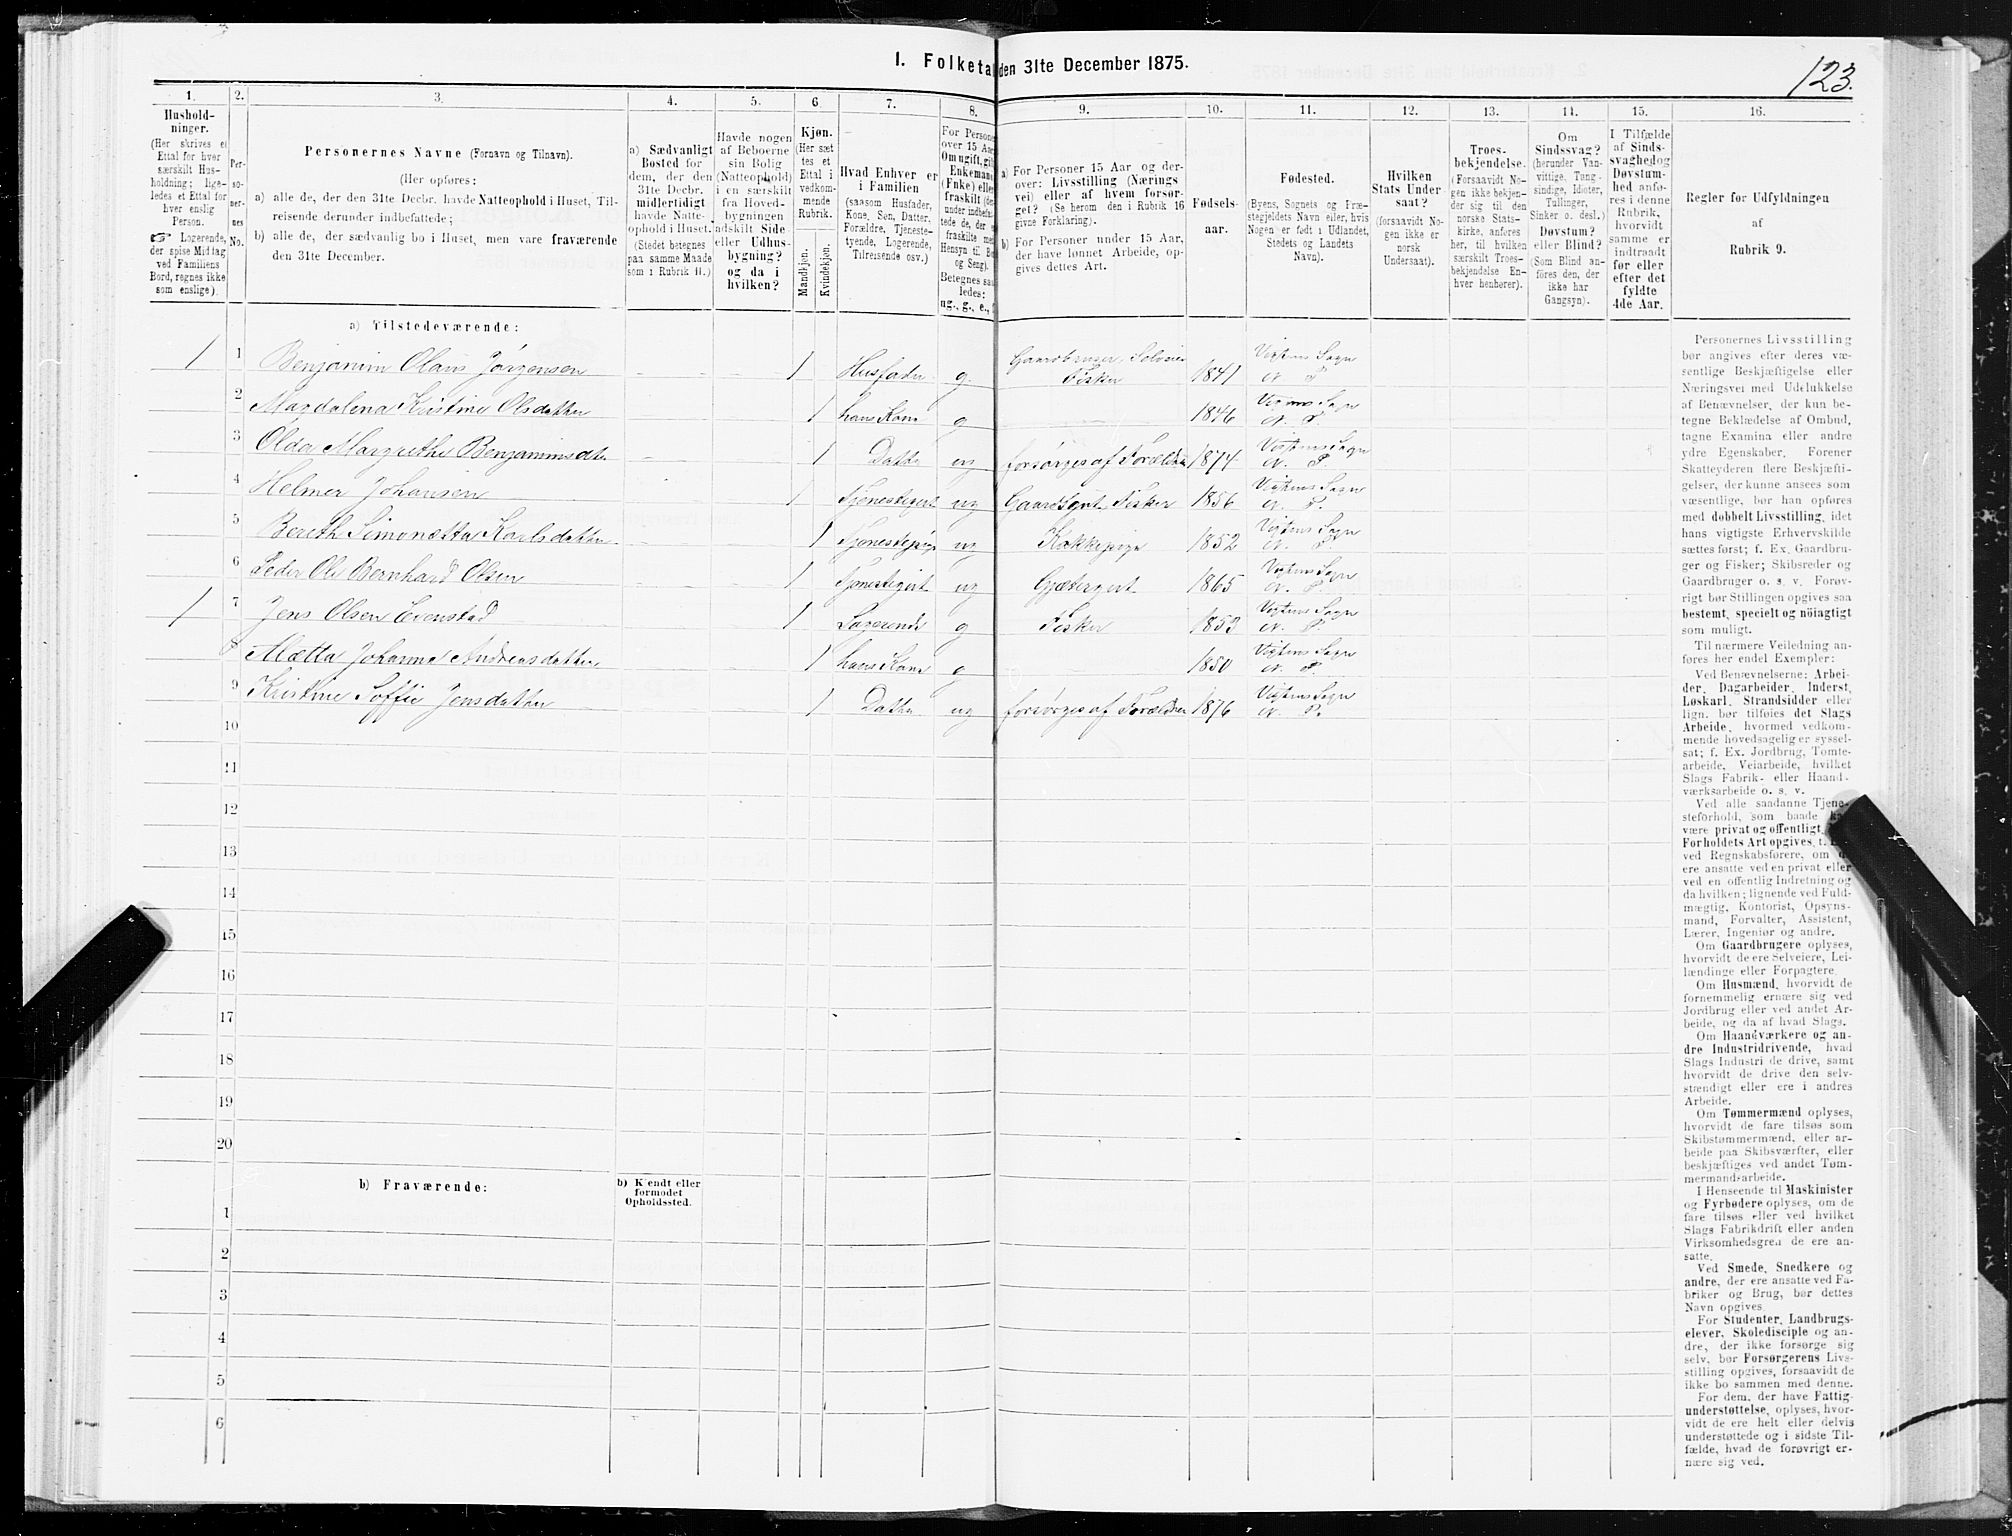 I. Folketal den 31te December 1875.
123.
1.
2.
3.
4.
5.
6
7.
8.
9.
10.
11.
12.
13.
14.
15.
16.
Hushold-
ninger.
(Her skrives et
Ettal for hver
særskilt Hus-
holdning; lige-
ledes et Ettal for
hver enslig
Person.
☞ Logerende,
der spise Middag
ved Familiens
Bord, regnes ikke
som enslige).
Per-
so-
ner-
nes
No.
Personernes Navne (Fornavn og Tilnavn).
(Her opføres:
a) alle de, der den 31te Decbr. havde Natteophold i Huset, Til-
reisende derunder indbefattede;
b) alle de, der sædvanlig bo i Huset, men vare fraværende
den 31te December.
a) Sædvanligt
Bosted for
dem, der den
31te Decbr.
midlertidigt
havde Natte-
ophold i Huset.
(Stedet betegnes
paa samme Maade
som i Rubrik 11.)
Havde nogen
af Beboerne
sin Bolig
(Natteophold)
i en særskilt
fra Hoved-
bygningen
adskilt Side-
eller Udhus-
bygning?
og da i
hvilken?
Kjøn.
(Her sæt-
tes et
Ettal i
vedkom-
mende
Rubrik.
Mandkjøn.
Kvindekjøn.
Hvad Enhver er
i Familien
(saasom Husfader,
Kone, Søn, Datter,
Forældre, Tjeneste-
tyende, Logerende,
Tilreisende osv.)
For Personer
over 15 Aar
Om ugift, gift,
Enkemand
(Enke) eller
fraskilt (der-
under indbefat-
tede de, der ere
fraskilte med
Hensyn til Bord
og Seng).
Betegnes saa-
ledes:
ug., g., e.,
a) For Personer 15 Aar og der-
over: Livsstilling (Nærings-
vei) eller af hvem forsør-
get? (Se herom den i Rubrik 16
givne Forklaring).
b) For Personer under 15 Aar,
der have lønnet Arbeide, op-
gives dettes Art.
Fødsels-
aar.
Fødested.
(Byens, Sognets og Præ-
stegjeldets Navn eller, hvis
Nogen er født i Udlandet,
Stedets og Landets
Navn).
Hvilken
Stats Under-
saat?
(forsaavidt No-
gen ikke er
norsk
Undersaat).
Troes-
bekjendelse.
(Forsaavidt No-
gen ikke bekjen-
der sig til den
norske Stats-
kirke, anføres
her, til hvilken
særskilt Troes-
bekjendelse En-
hver henhører).
Om
Sindssvag?
(herunder Van-
vittige, Tung-
sindige, Idioter,
Tullinger,
Sinker o. desl.)
Døvstum?
eller Blind?
(Som Blind an-
føres den, der
ikke har
Gangsyn).
I Tilfælde
af Sinds-
svaghed og
Døvstum-
hed anfø-
res i denne
Rubrik,
hvorvidt
samme er
indtraadt
før eller
efter det
fyldte
4de Aar.
Regler for Udfyldningen
af
Rubrik 9.
a) Tilstedeværende:
1 1 Benjamin Olaus Jørgensen 1 Husfader g. Gaardbruger, Selveier Fisker 1841 Vigtens Sogn N. P.
2 Magdalena Kristine Olsdatter 1 hans Kone g 1846 Vigtens Sogn N. P.
3 Olda Margrethe Benjaminsdtr 1 Datter ug forsørges af Forældre 1874 Vigtens Sogn N. P.
4 Helmer Johansen 1 Tjenestegut ug Gaardsgut, Fisker 1856 Vigtens Sogn N. P.
5 Berethe Simonetta Karlsdatter 1 Tjenestepige ug Kokkepige 1852 Vigtens Sogn N. P.
6 Peder Ole Bernhard Olsen 1 Tjenestegut ug Gjætergut 1865 Vigtens Sogn N. P.
1 7 Jens Olsen Evenstad 1 Logerende g Fisker 1853 Vigtens Sogn N. P.
8 Mætta Johanna Andreasdatter 1 hans Kone g 1850 Vigtens Sogn N. P.
9 Kristine Soffie Jensdatter 1 Datter ug forsørges af Forældre 1876 Vigtens Sogn N. P.
10
11
12
13
14
15
16
17
18
19
20
b) Fraværende:
b) Kjendt eller
formodet
Opholdssted.
1
2
3
4
5
6
Personernes Livsstilling
bør angives efter deres væ-
sentlige Beskjæftigelse eller
Næringsvei med Udelukkelse
af Benævnelser, der kun be-
tegne Beklædelse af Ombud,
tagne Examina eller andre
ydre Egenskaber. Forener
Skatteyderen flere Beskjæfti-
gelser, der kunne ansees som
væsentlige, bør han opføres
med dobbelt Livsstilling, idet
hans vigtigste Erhvervskilde
sættes først; f. Ex. Gaardbru-
ger og Fisker; Skibsreder og
Gaardbruger o. s. v. Forøv-
rigt bør Stillingen opgives saa
bestemt, specielt og nøiagtigt
som muligt.
Til nærmere Veiledning an-
føres her endel Exempler:
Ved Benævnelserne: Arbei-
der, Dagarbeider, Inderst,
Løskarl, Strandsidder eller
lign. bør tilføies det Slags
Arbeide, hvormed vedkom-
mende hovedsagelig er syssel-
sat; f. Ex. Jordbrug, Tomte-
arbeide, Veiarbeide, hvilket
Slags Fabrik- eller Haand-
værksarbeide o. s. v.
Ved alle saadanne Tjene-
steforhold, som baade kan
være privat og offentligt,
Forholdets Art opgives, t.
ved Regnskabsførere, om de
ere ansatte ved en privat eller
ved en offentlig Indretning og
da hvilken; lignende ved Fuld-
mægtig, Kontorist, Opsyns-
mand, Forvalter, Assistent,
Lærer, Ingeniør og andre.
Om Gaardbrugere oplyses,
hvorvidt de ere Selveiere, Lei-
lændinge eller Forpagtere.
Om Husmænd, hvorvidt de
fornemmelig ernære sig ved
Jordbrug eller ved andet Ar-
beide, og da af hvad Slags.
Om Haandværkere og an-
dre Industridrivende, hvad
Slags Industri de drive, samt
hvorvidt de drive den selv-
stændigt eller ere i andres
Arbeide.
Om Tømmermænd oplyses,
hvorvidt de fare tilsøs som
Skibstømmermænd, eller ar-
beide paa Skibsværfter, eller
beskjæftiges ved andet Tøm-
mermandsarbeide.
I Henseende til Maskinister
og Fyrbødere oplyses, om de
fare tilsøs eller ved hvilket
Slags Fabrikdrift eller anden
Virksomhedsgren de ere an-
satte.
Ved Smede, Snedkere og
andre, der ere ansatte ved Fa-
briker og Brug, bør dettes
Navn opgives.
For Studenter, Landbrugs-
elever, Skoledisciple og an-
dre, der ikke forsørge sig
selv, bør Forsørgerens Livs-
stilling opgives, forsaavidt de
ikke bo sammen med denne.
For dem, der have Fattig-
understøttelse, oplyses, hvor-
vidt de ere helt eller delvis
understøttede og i sidste Til-
fælde, hvad de forøvrigt er-
nære sig ved.